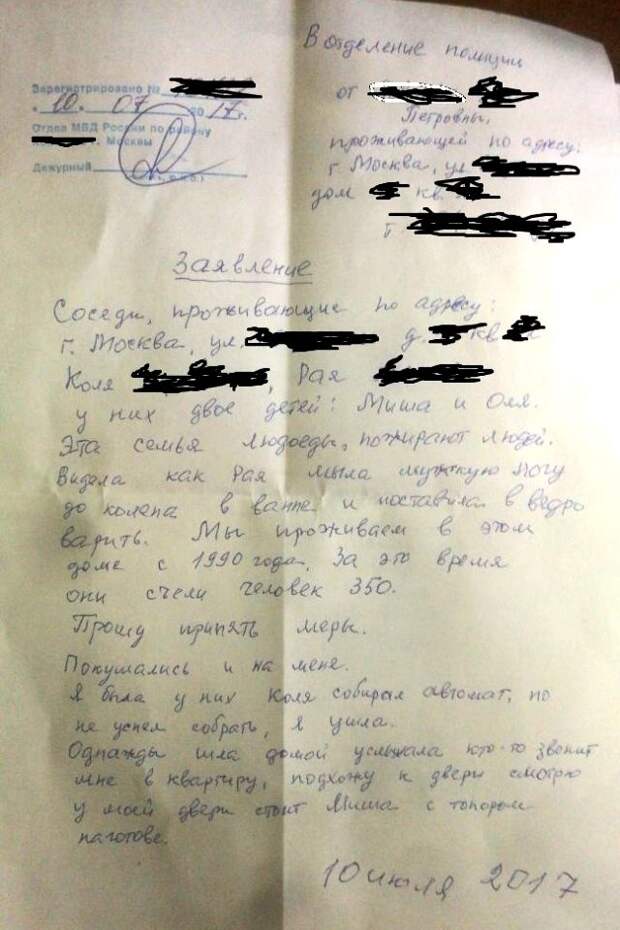 В отделение полиции
Зарегистрировано №
" 10. 07 2017г.
Отдел МВД России по району
, Москвы
Дежурный
от
Петровны,
проживающей по адресу:
г. Москва, ул.
дом кв.
т
Заявление
Соседи, проживающие по адресу:
г. Москва, ул. д. кв.
Коля , Рая
у них двое детей: Миша и Оля.
Эта семья людоеды, пожирают людей.
Видела как Рая мыла мужскую ногу
до колена в ванне и поставила в ведро
варить. Мы проживаем в этом
доме с 1990 года. За это время
они съели человек 350.
Прошу принять меры.
Покушались и на меня.
Я была у них Коля собирал автомат, но
не успел собрать, я ушла.
Однажды шла домой услышала кто-то звонит
мне в квартиру, подхожу к двери смотрю
у моей двери стоит Миша с топором
наготове.
10 июля 2017